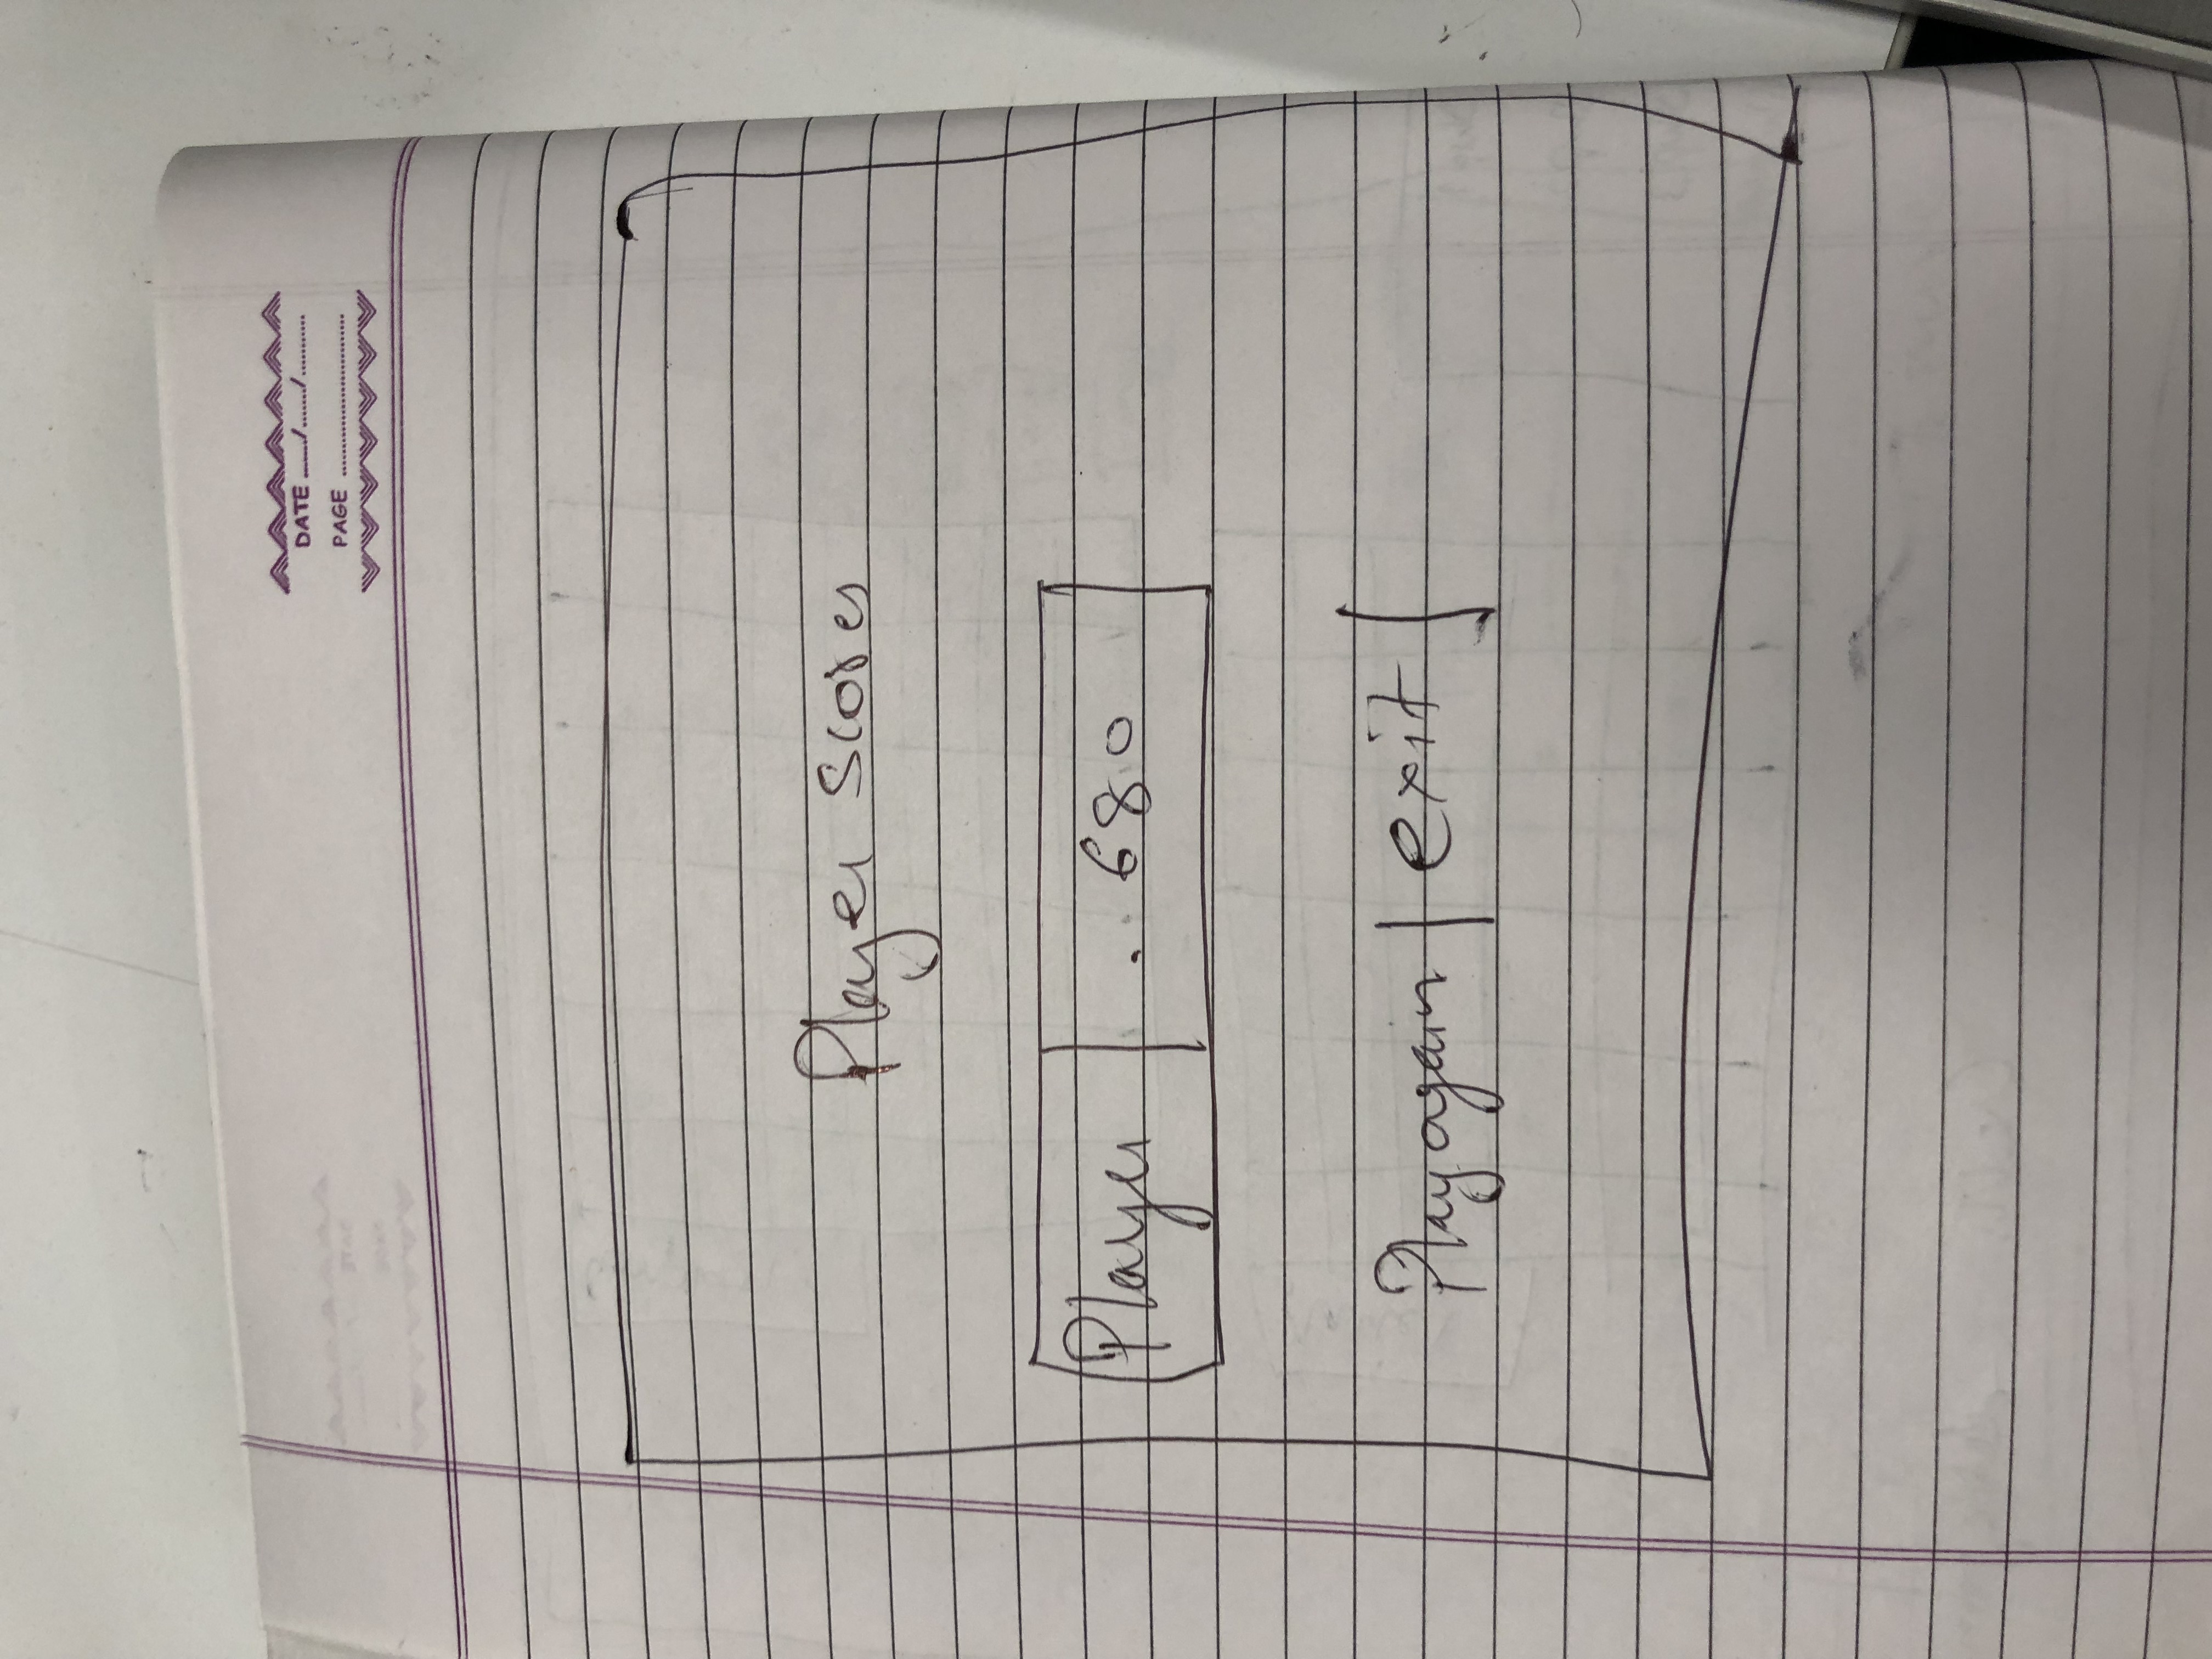 DATE ___/___/______
PAGE ______________
Player Scores
Player | . 680
Play again | exit |